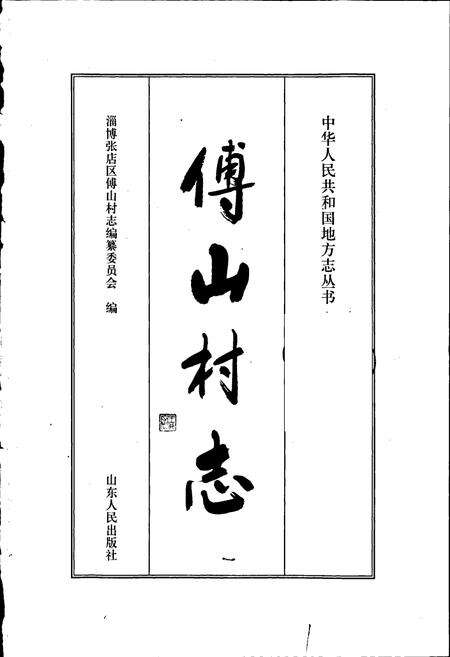 中华人民共和国地方志丛书
傅山村志
一
淄博张店区傅山村志编纂委员会 编
山东人民出版社